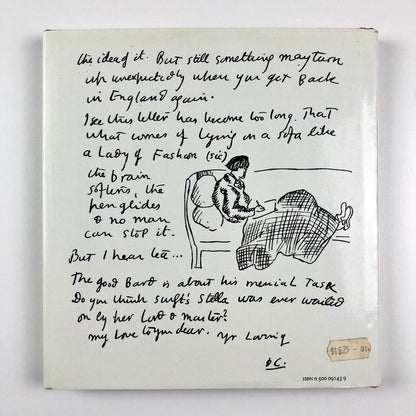 the idea of it. But still something may turn
up unexpectedly when you get back
in England again.
I see this letter has become too long. That
what comes of lying on a sofa like
a Lady of Fashion (sic)
the brain
softens, the
pen glides
& no man
can stop it.
But I hear tea...
The good Bard is about his menial task
Do you think Swift's Stella was ever waited
on by her Lord & master?
my love to you dear. yr Loving
DC.
ISBN 0 500 09143 9